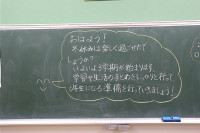 おはよう！
冬休みは楽しく過ごせた
でしょうか？
いよいよ3学期が始まります。
学習や生活のまとめをしっかりと行って
年生になる準備を行っていきましょう！